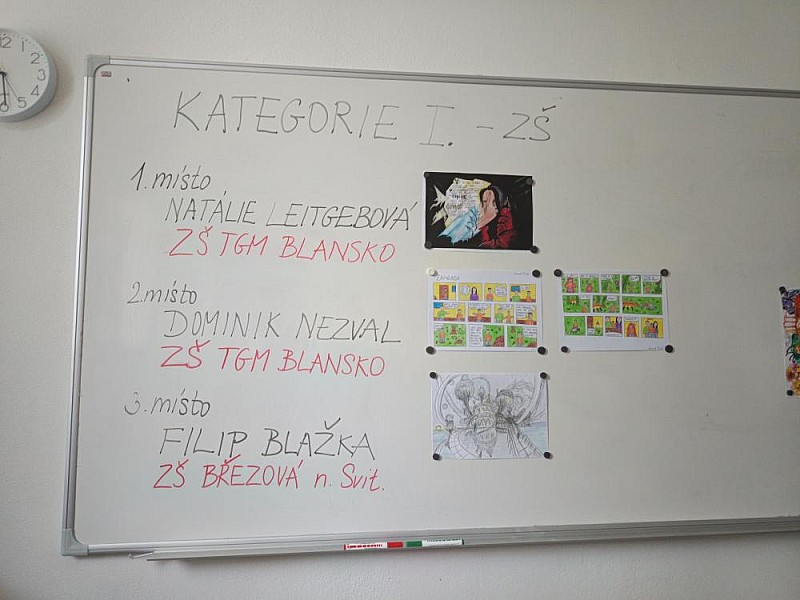 KATEGORIE I. - ZŠ
1. místo
NATÁLIE LEITGEBOVÁ
ZŠ TGM BLANSKO
2. místo
DOMINIK NEZVAL
ZŠ TGM BLANSKO
3. místo
FILIP BLAŽKA
ZŠ BŘEZOVÁ n. Svit.
12
1
2
3
4
5
6